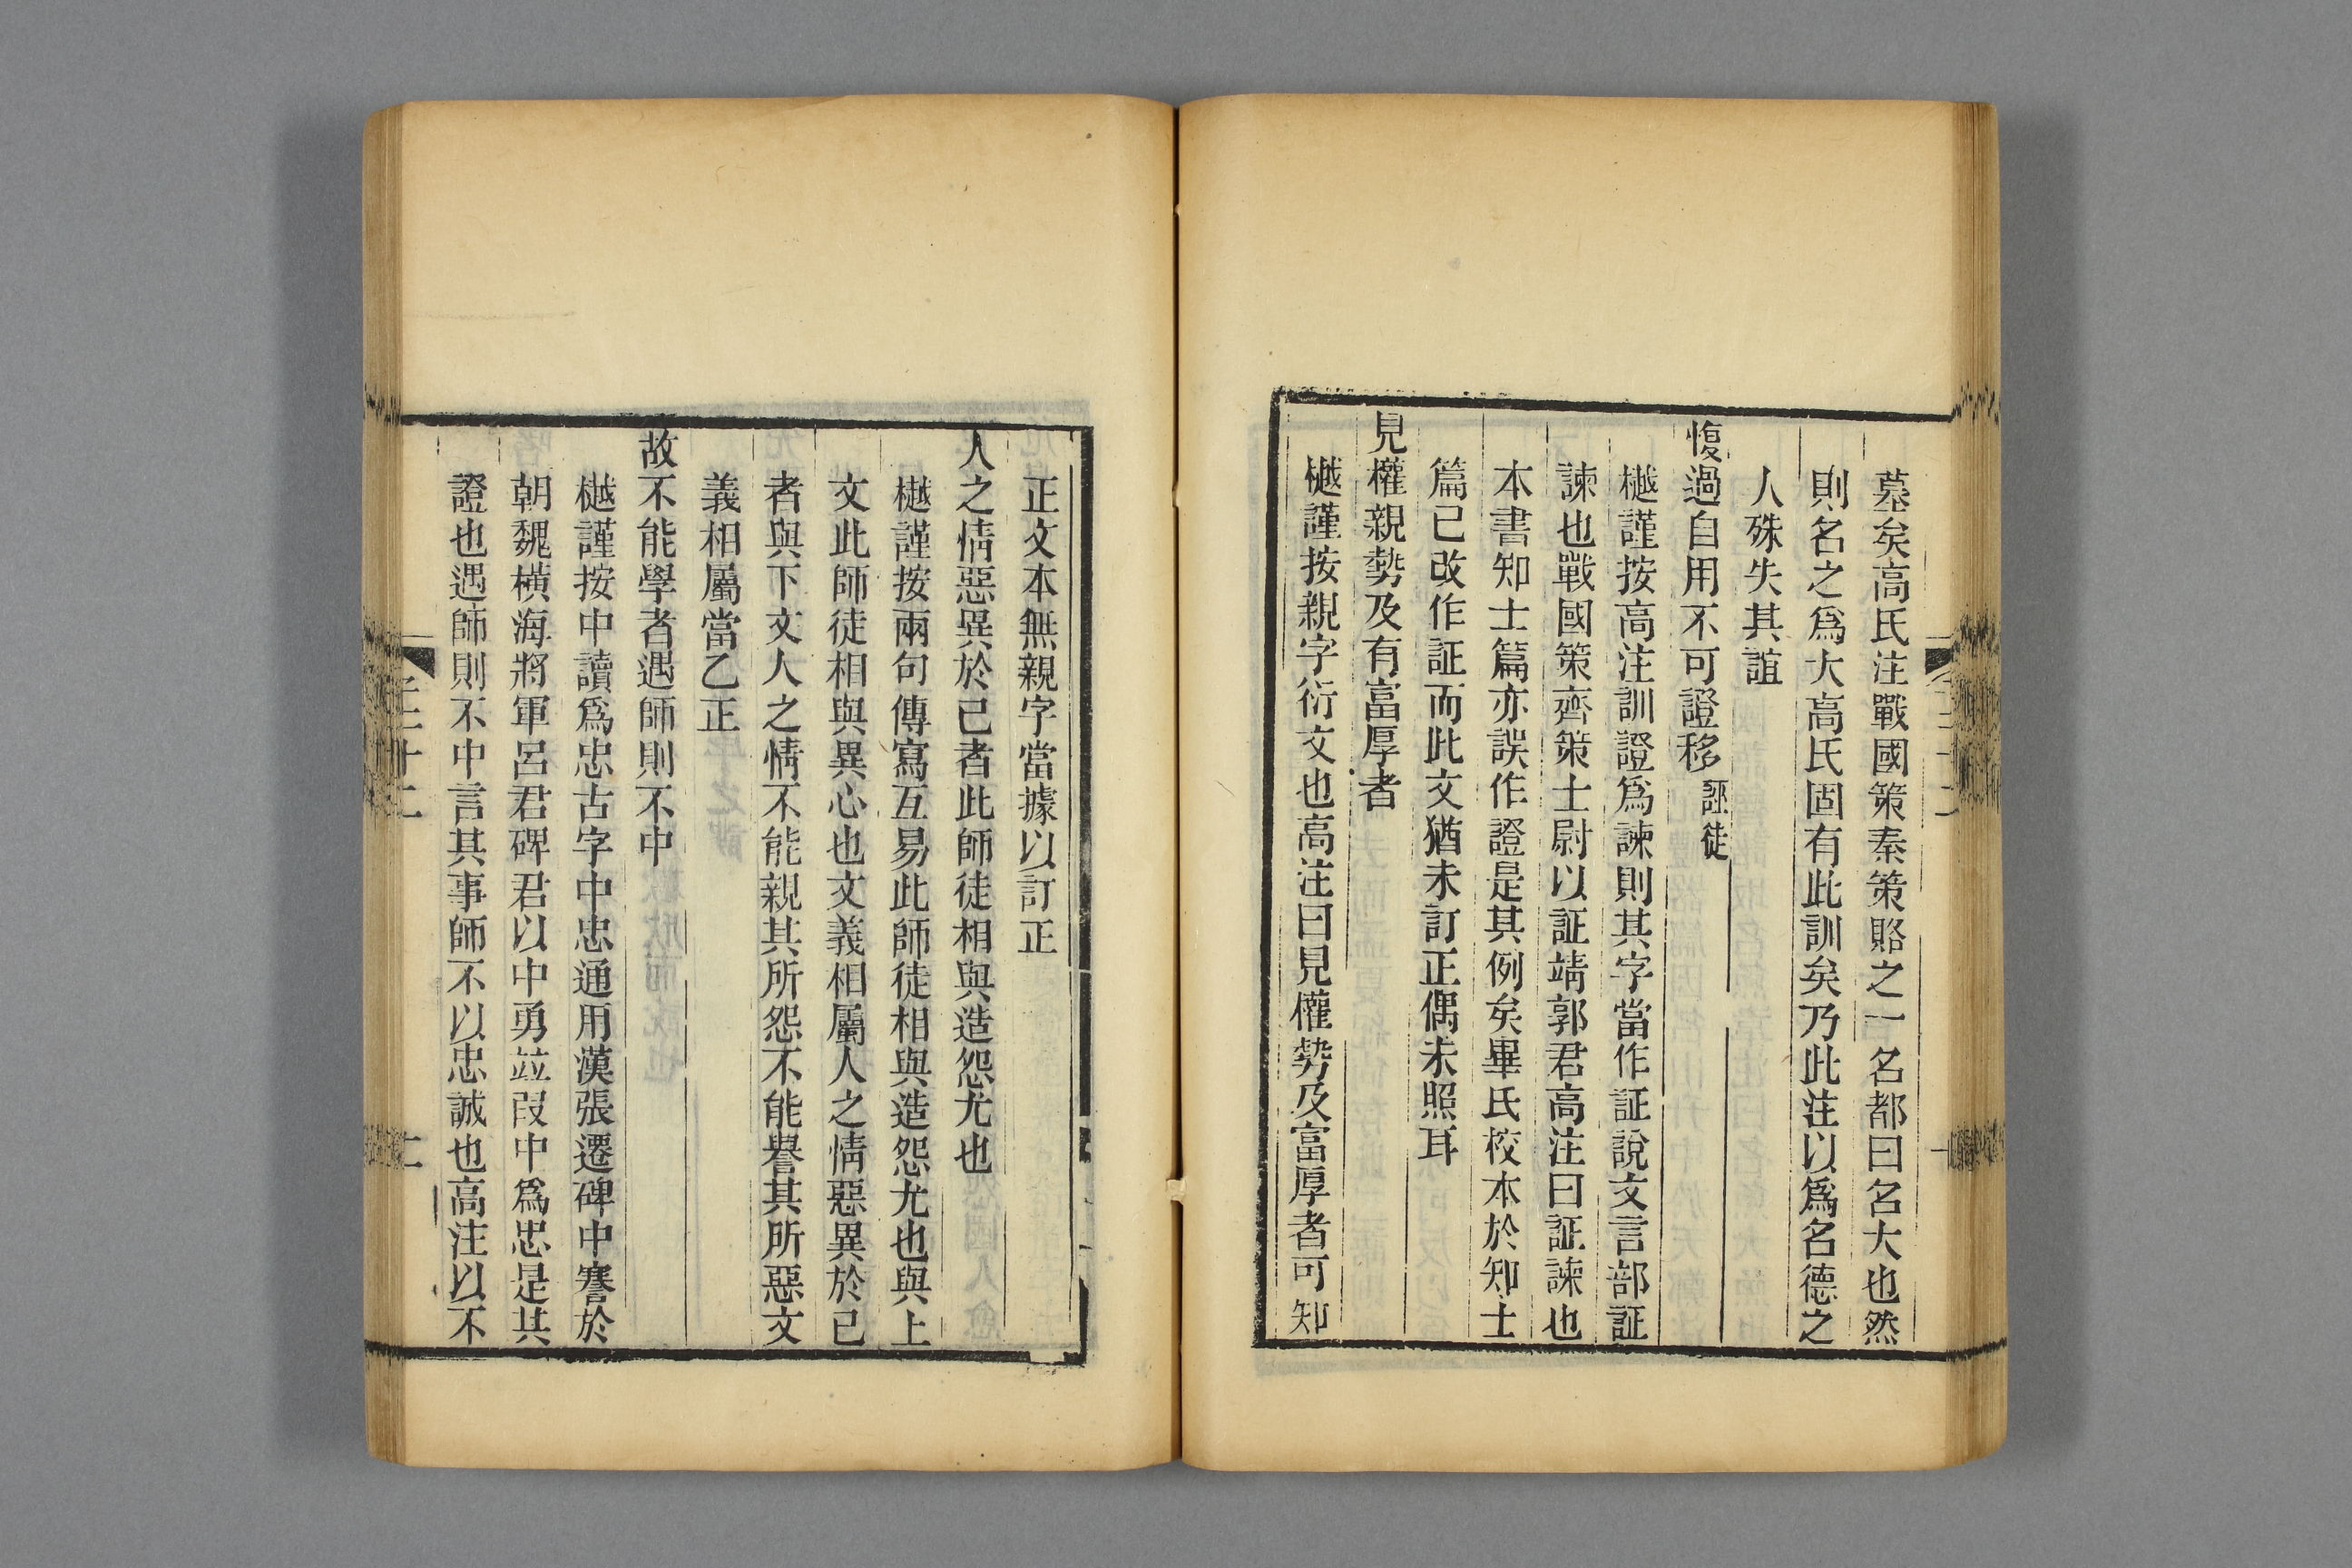 墓矣高氏注戰國策秦策賂之一名都曰名大也然
則名之爲大高氏固有此訓矣乃此注以爲名德之
人殊失其誼
愎過自用不可證移誣徒
樾謹按高注訓證爲諫則其字當作証說文言部証
諫也戰國策齊策士尉以証靖郭君高注曰証諫也
本書知士篇亦誤作證是其例矣畢氏校本於知士
篇已改作証而此文猶未訂正偶未照耳
見權親勢及有富厚者
樾謹按親字衍文也高注曰見權勢及富厚者可知
正文本無親字當據以訂正
人之情惡異於己者此師徒相與造怨尤也
樾謹按兩句傳寫互易此師徒相與造怨尤也與上
文此師徒相與異心也文義相屬人之情惡異於己
者與下文人之情不能親其所怨不能譽其所惡文
義相屬當乙正
故不能學者遇師則不中
樾謹按中讀爲忠古字中忠通用漢張遷碑中謇於
朝魏橫海將軍呂君碑君以中勇竝叚中爲忠是其
證也遇師則不中言其事師不以忠誠也高注以不